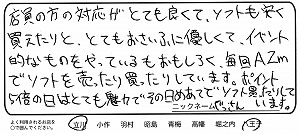 店員の方の対応がとても良くて、ソフトも安く
買えたりと、とてもおさいふに優しくて、イベント
的なものをやっているもおもしろく、毎回AZm
でソフトを売ったり買ったりしています。ポイント
5倍の日はとても魅力でその日めあてでソフト買ったりして
います。
ニックネーム
さん
よく利用されるお店を
○で囲んでください。
立川 小作 羽村 昭島 青梅 高幡 堀之内 八王子